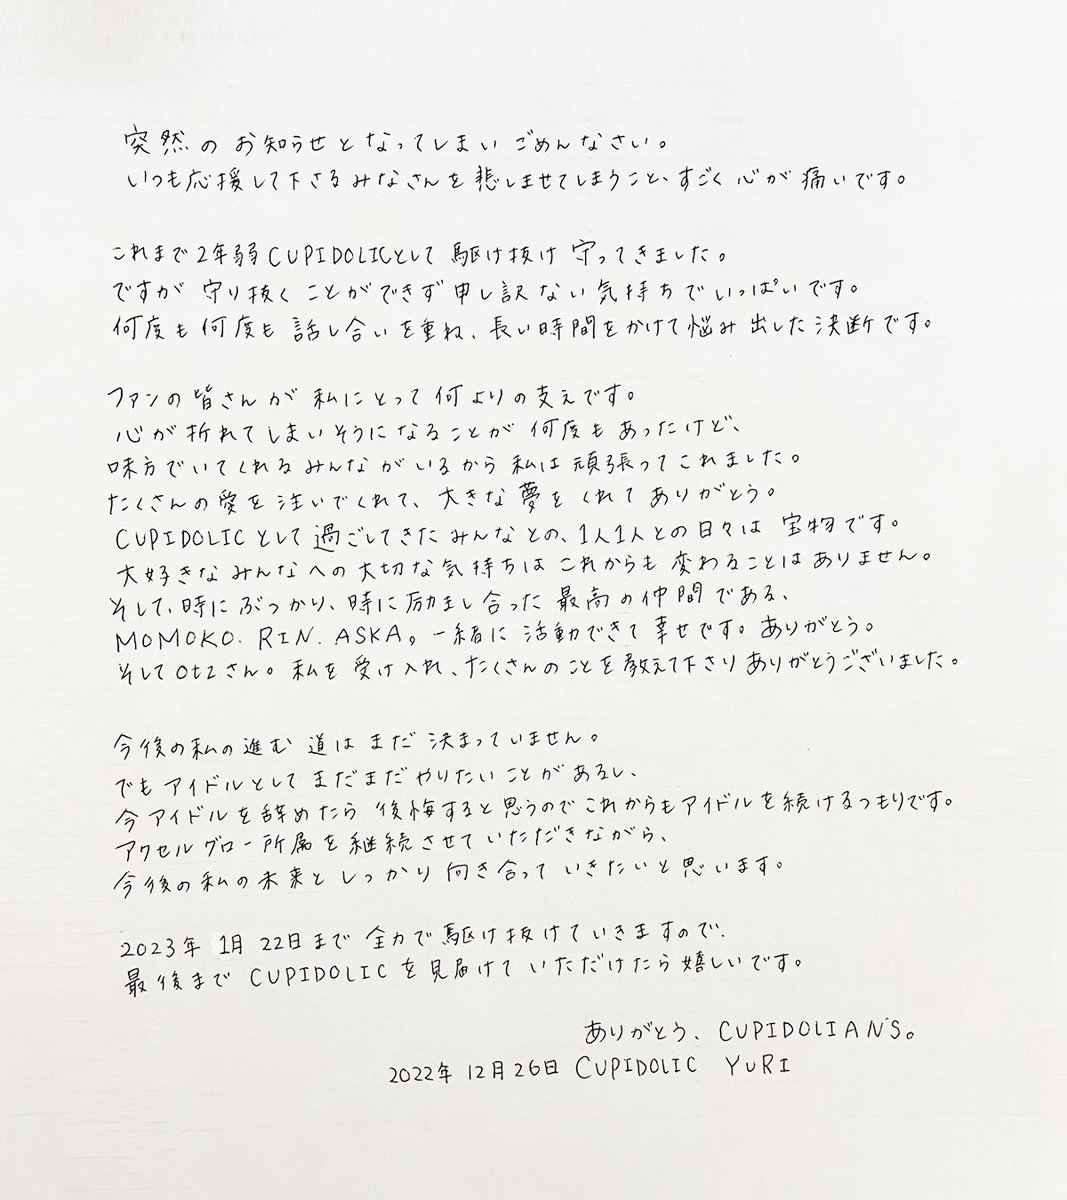 突然のお知らせとなってしまいごめんなさい。
いつも応援して下さるみなさんを悲しませてしまうこと、すごく心が痛いです。
これまで2年弱CUPIDOLICとして駆け抜け守ってきました。
ですが守り抜くことができず申し訳ない気持ちでいっぱいです。
何度も何度も話し合いを重ね、長い時間をかけて悩み出した決断です。
ファンの皆さんが私にとって何よりの支えです。
心が折れてしまいそうになることが何度もあったけど、
味方でいてくれるみんながいるから私は頑張ってこれました。
たくさんの愛を注いでくれて、大きな夢をくれてありがとう。
CUPIDOLICとして過ごしてきたみんなとの、1人1人との日々は宝物です。
大好きなみんなへの大切な気持ちはこれからも変わることはありません。
そして、時にぶつかり、時に励まし合った最高の仲間である、
MOMOKO. RIN. ASKA。一緒に活動できて幸せです。ありがとう。
そしてOtzさん。私を受け入れ、たくさんのことを教えて下さりありがとうございました。
今後の私の進む道はまだ決まっていません。
でもアイドルとしてまだまだやりたいことがあるし、
今アイドルを辞めたら後悔すると思うのでこれからもアイドルを続けるつもりです。
アクセルグロー所属を継続させていただきながら、
今後の私の未来としっかり向き合っていきたいと思います。
2023年1月22日まで全力で駆け抜けていきますので、
最後までCUPIDOLICを見届けていただけたら嬉しいです。
ありがとう、CUPIDOLIAN'S。
2022年12月26日 CUPIDOLIC YURI